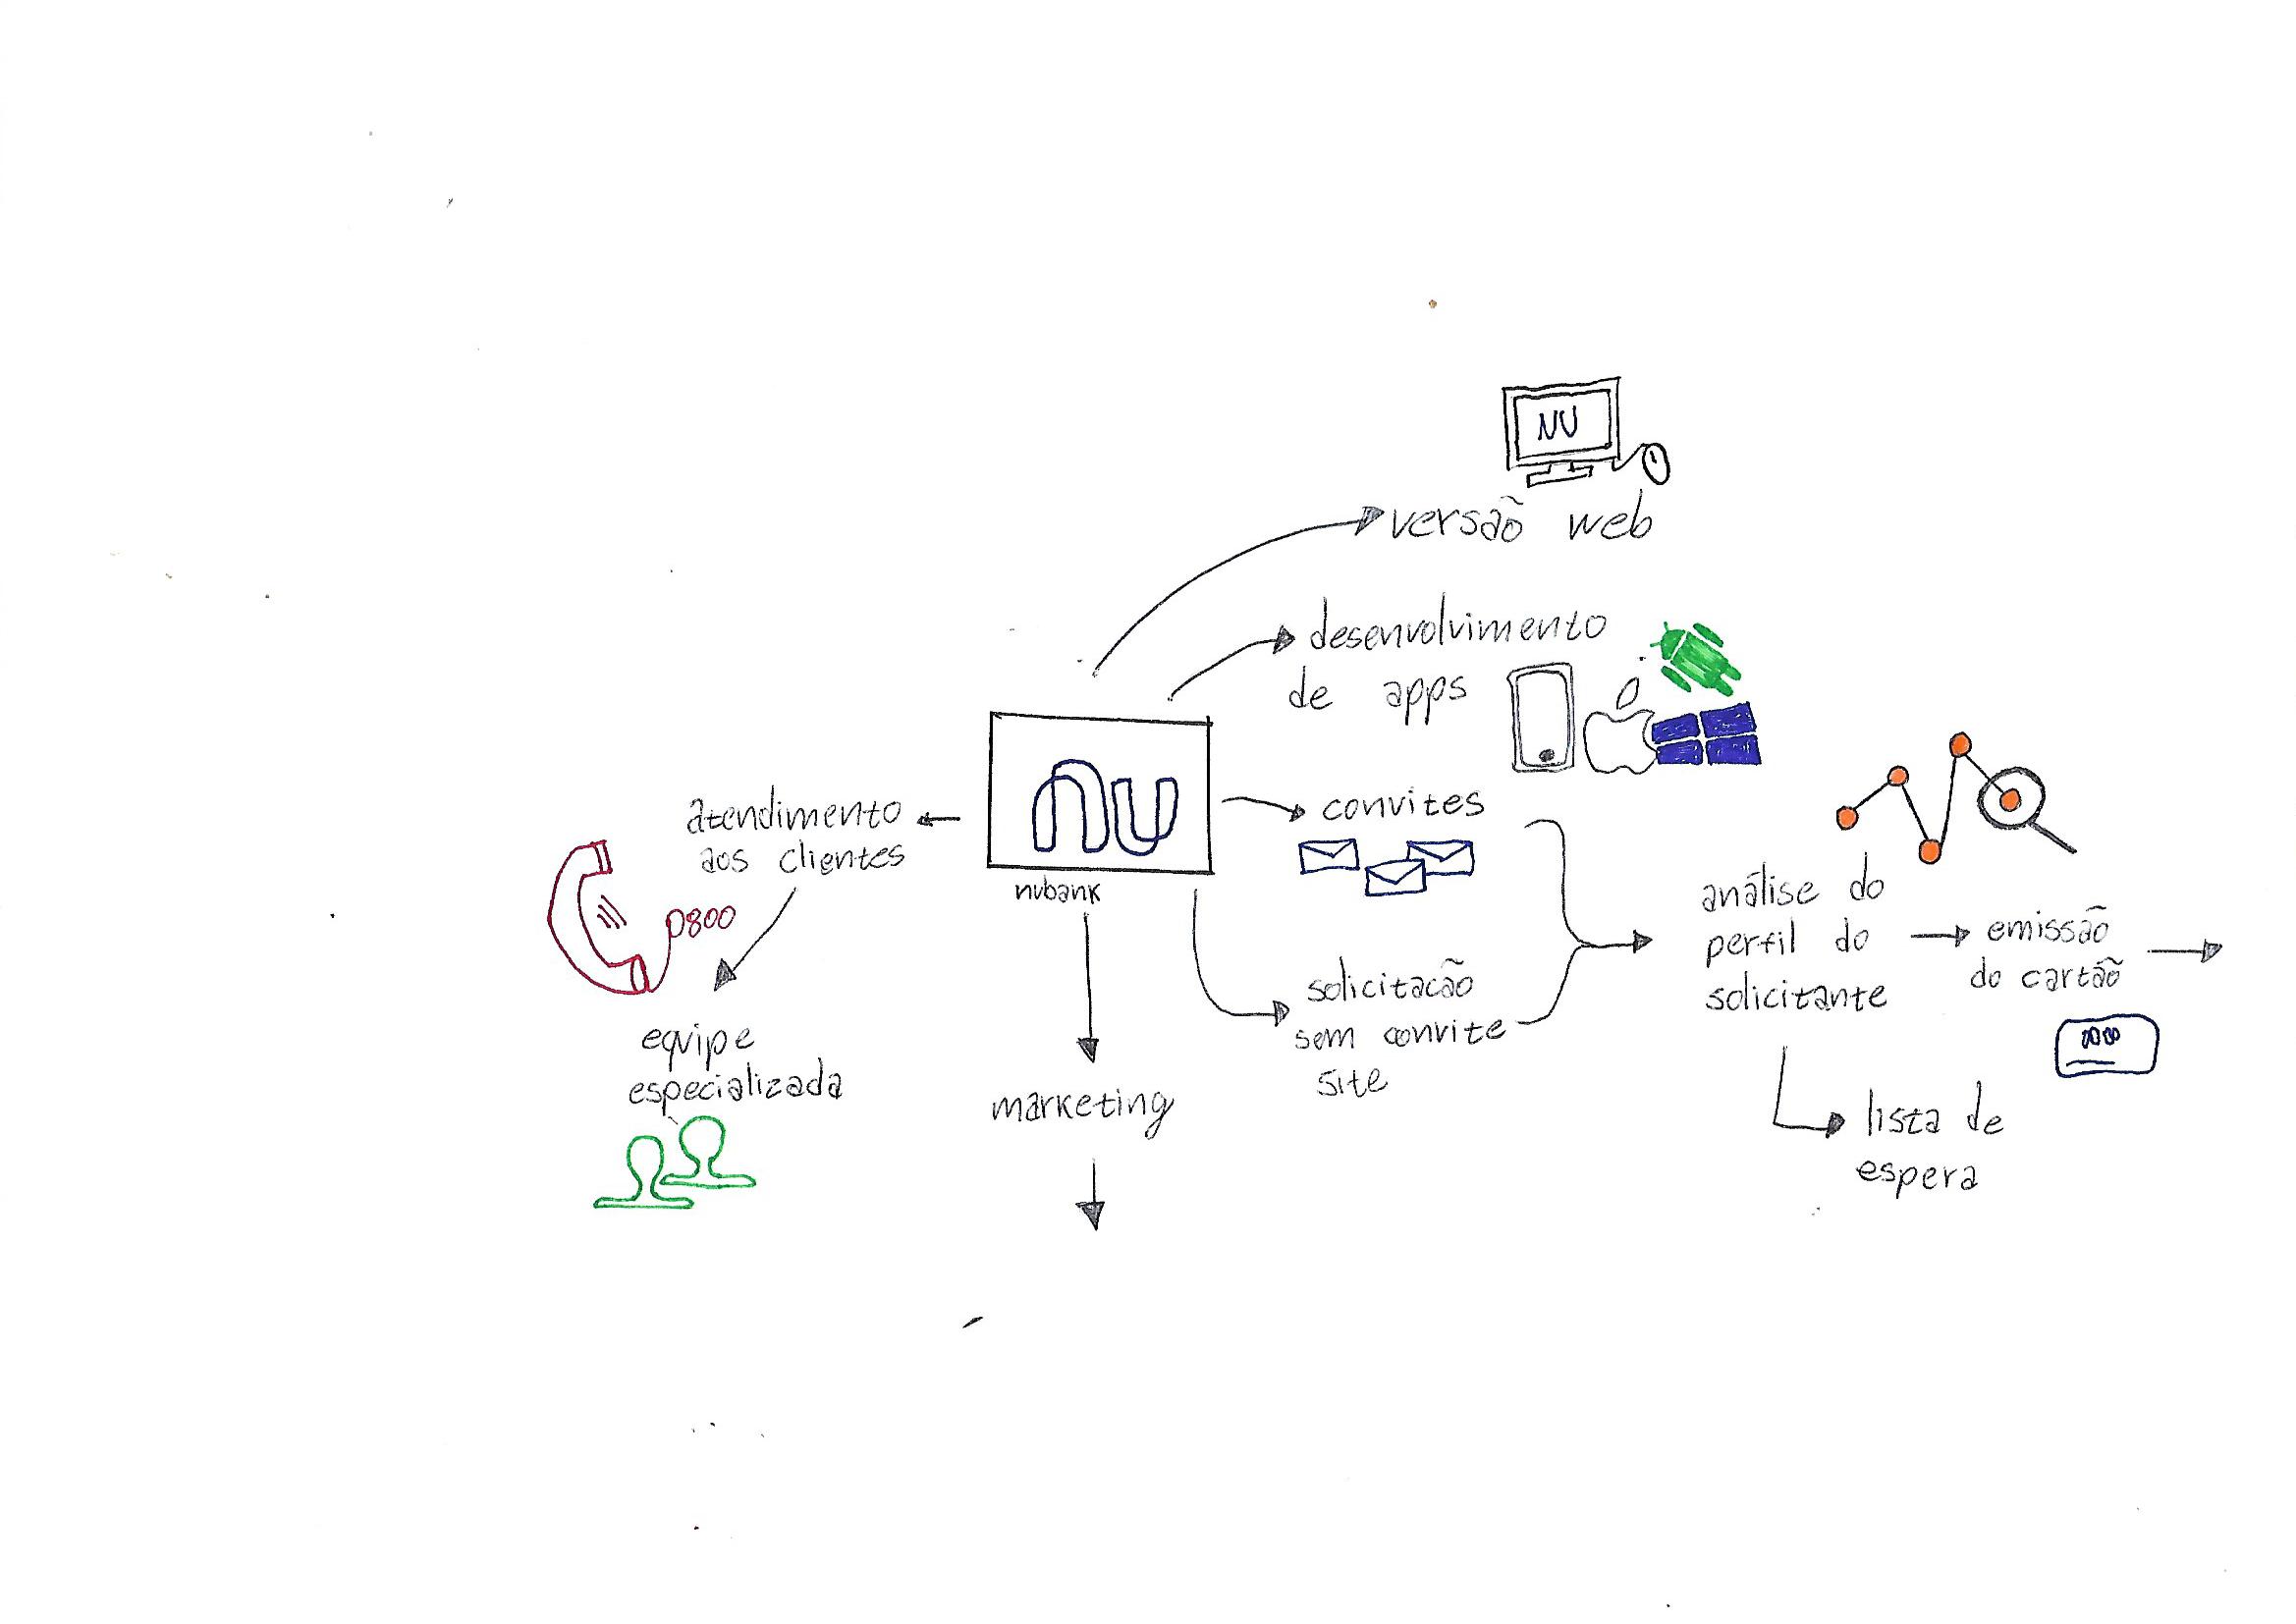 NU
versão web
desenvolvimento
de apps
nu
nubank
atendimento
aos clientes
0800
equipe
especializada
marketing
convites
solicitacão
sem convite
site
análise do
perfil do
solicitante
emissão
do cartão
lista de
espera